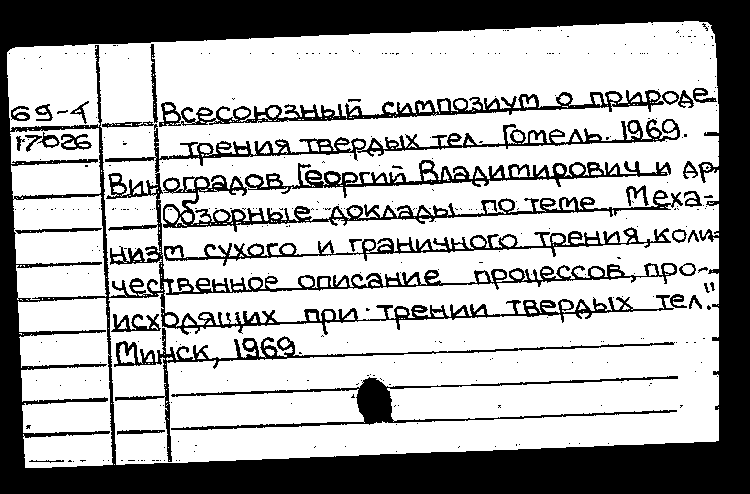 69-4 Всесоюзный симпозиум о природе
17026 трения твердых тел. Гомель. 1969.
Виноградов, Георгий Владимирович и др.
Обзорные доклады по теме „Меха=
низм сухого и граничного трения, коли=
чественное описание процессов, про-
исходящих при трении твердых тел."
Минск, 1969.